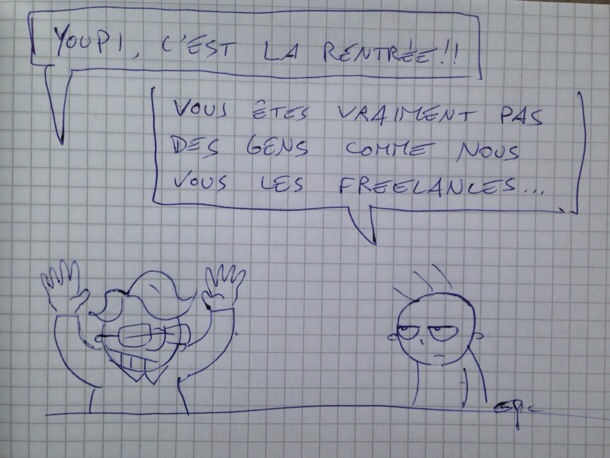 YOUPI, C'EST LA RENTRÉE!!
VOUS ÊTES VRAIMENT PAS
DES GENS COMME NOUS
VOUS LES FREELANCES...